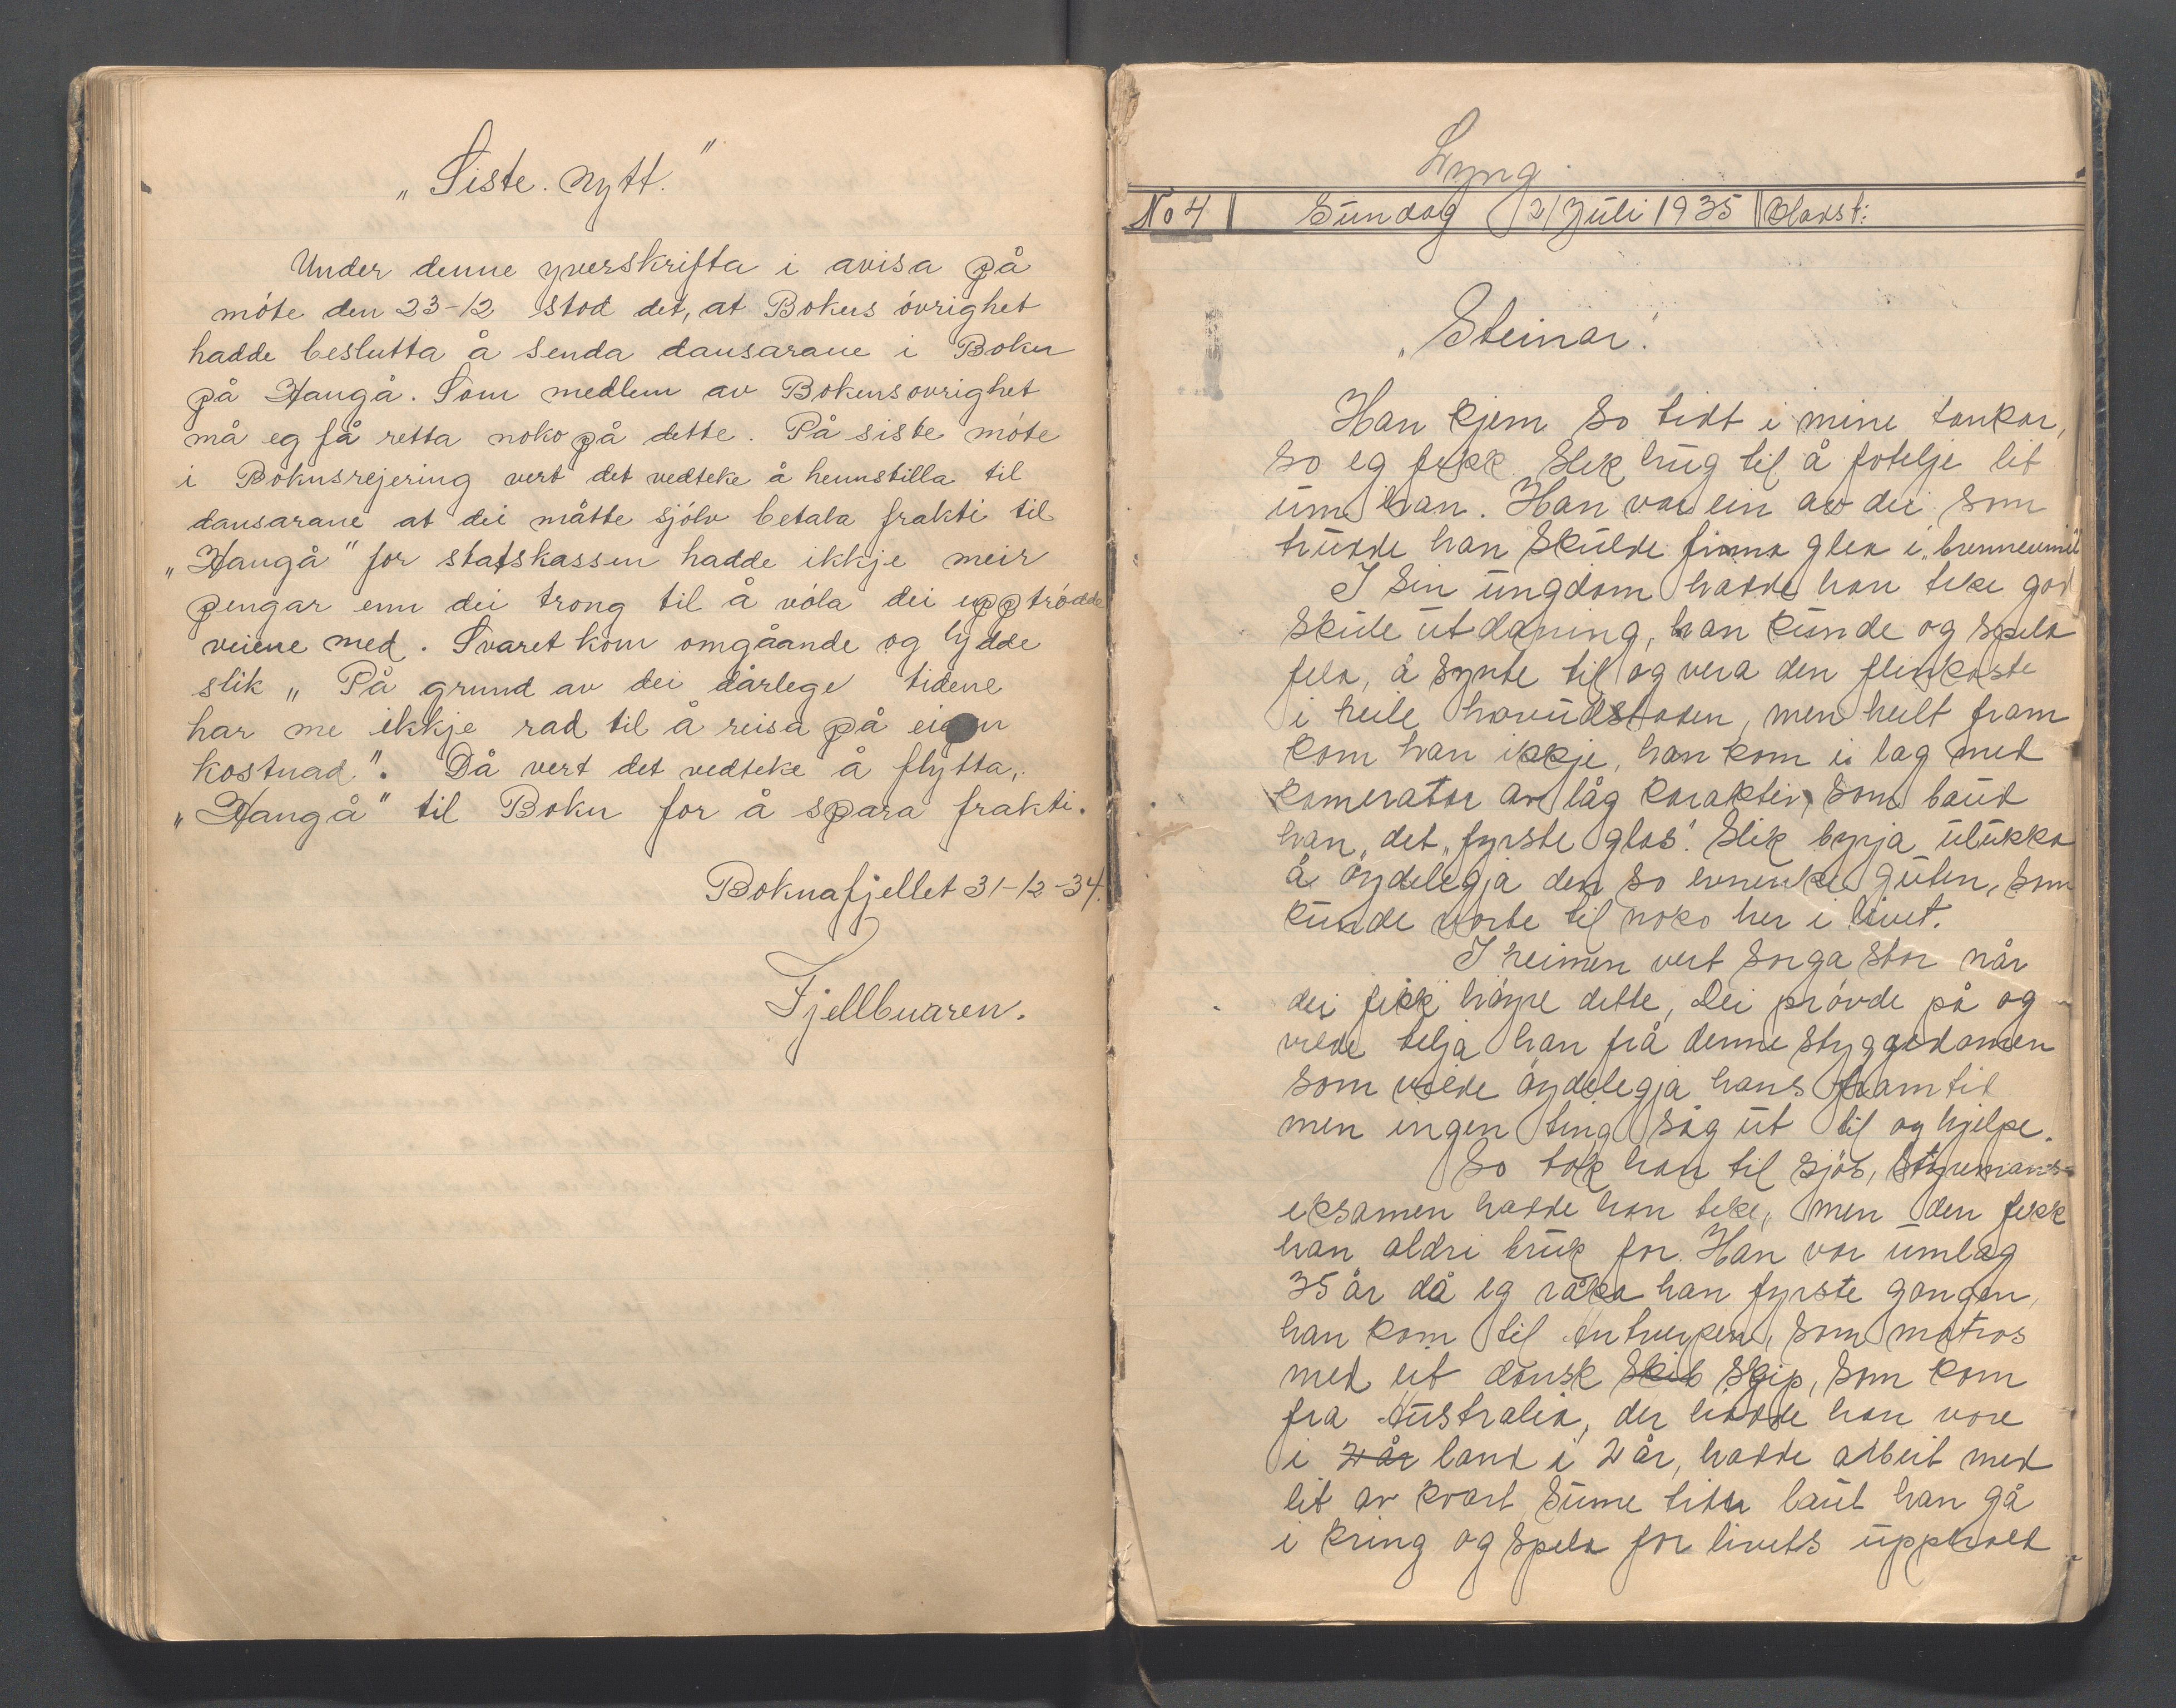 „Siste. nytt."
Under denne yverskrifta i avisa på
móte den 23-12 stod det, at Bokns óvrighet
hadde beslutta å senda dansarane i Bokn
på Haugå. Som medlem av Boknsovrighet
må eg få retta noko på dette. På siste móte
i Boknsrejering vert det vedteke å hennstilla til
dansarane at dei måtte sjólv betala frakti til
„Haugå" for statskassen hadde ikkje meir
pengar enn dei trong til å vóla dei upptródde
veiene med. Svaret kom omgåande og lydde
slik „ På grund av dei dårlege tidene
har me ikkje rad til å reisa på eigen
kostnad". Då vert det vedteke å flytta,
„Haugå" til Bokn for å spara frakti.
Boknafjellet 31-12-34.
Fjellbuaren.
Lyng.
No 4 Sundag 2/ Juli 1935
„Steinar".
Han kjem so tidt i mine tankar,
so eg fekk slik hug til å fotelje lit
um han. Han var ein av dei som
trudde han skulde finna glea i „brennevinet
I sin ungdom hadde han teke god
skule utdaning, han kunde og spela
fela, å synte til og vera den flinkaste
i heile hovudstaden, men heilt fram
kom han ikkje, han kom i lag med
kamerater av låg karakter, som baud
han, det „fyrste glas". Slik byrja ulukka
å øydelegja den so evnerike guten, som
kunde vorte til noko her i livet.
I heimen vert sorga stor når
dei fekk høyre dette, Dei próvde på og
vilde telja han frå denne styggedomen
som vilde øydelegja hans framtid
men ingen ting såg ut til og hjelpe.
So tok han til sjós, styrmans-
eksamen hadde han teke, men den fekk
han aldri bruk for. Han var umlag
35 år då eg råka han fyrste gongen,
han kom til Antverpen, som matros
med eit dansk skib skip, som kom
fra Australia, der hadde han vore
i 2 år land i 2 år, hadde arbeit med
lit av kvart. Sume tider laut han gå
i kring og spela for livets upphald